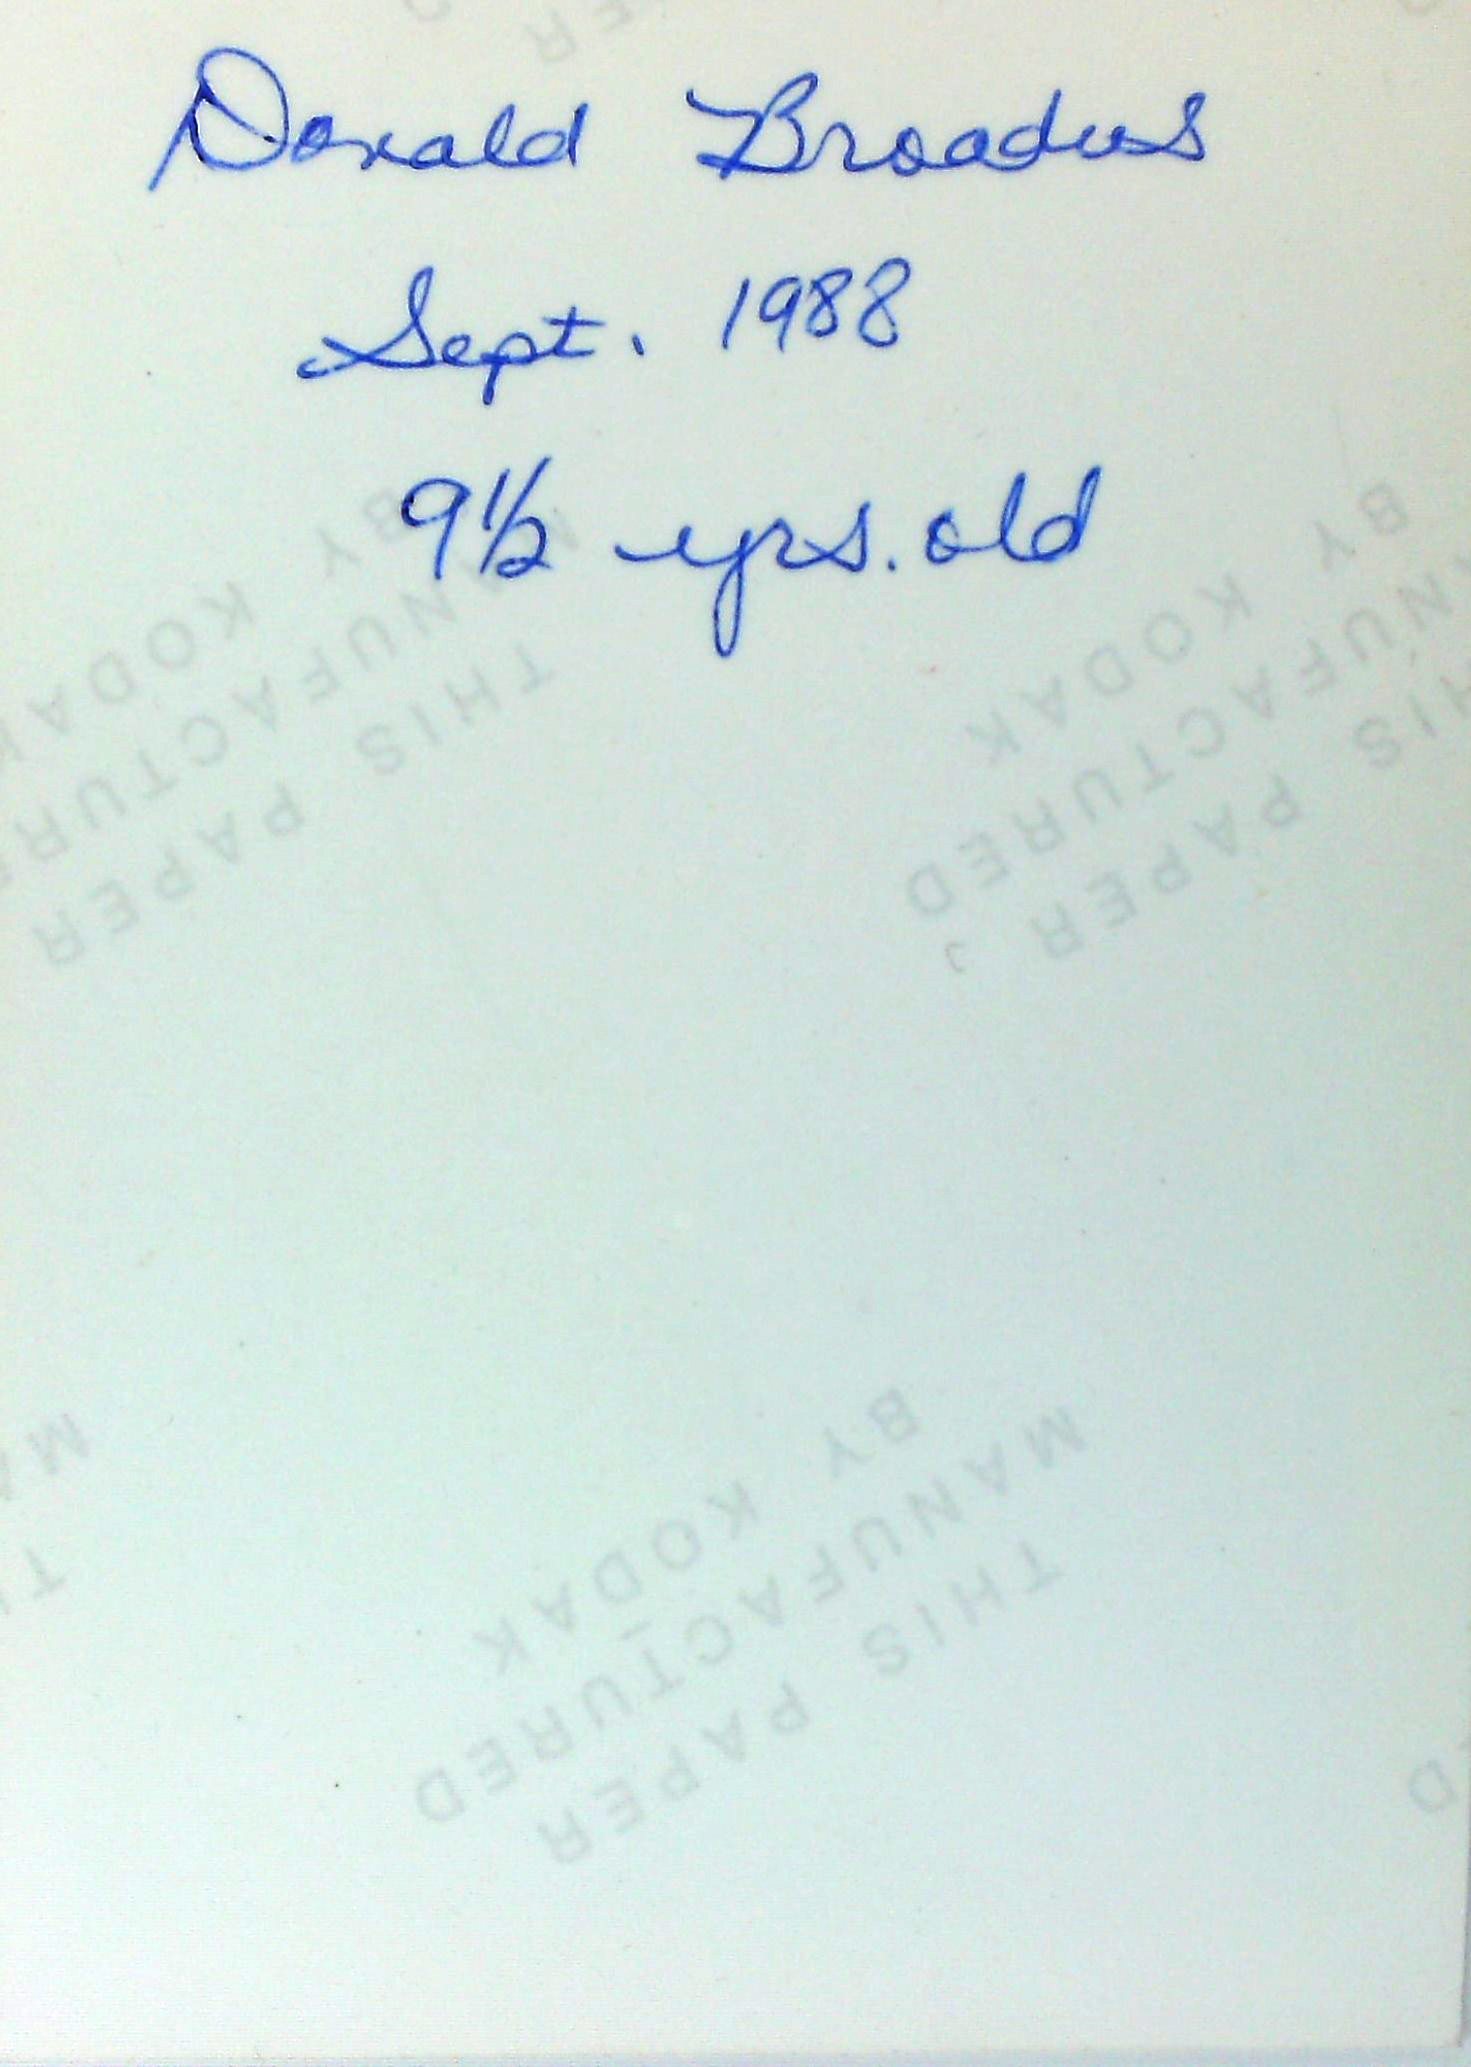 Donald Broadus
Sept. 1988
9½ yrs. old
THIS PAPER
MANUFACTURED
BY KODAK
THIS PAPER
MANUFACTURED
BY KODAK
THIS PAPER
MANUFACTURED
BY KODAK